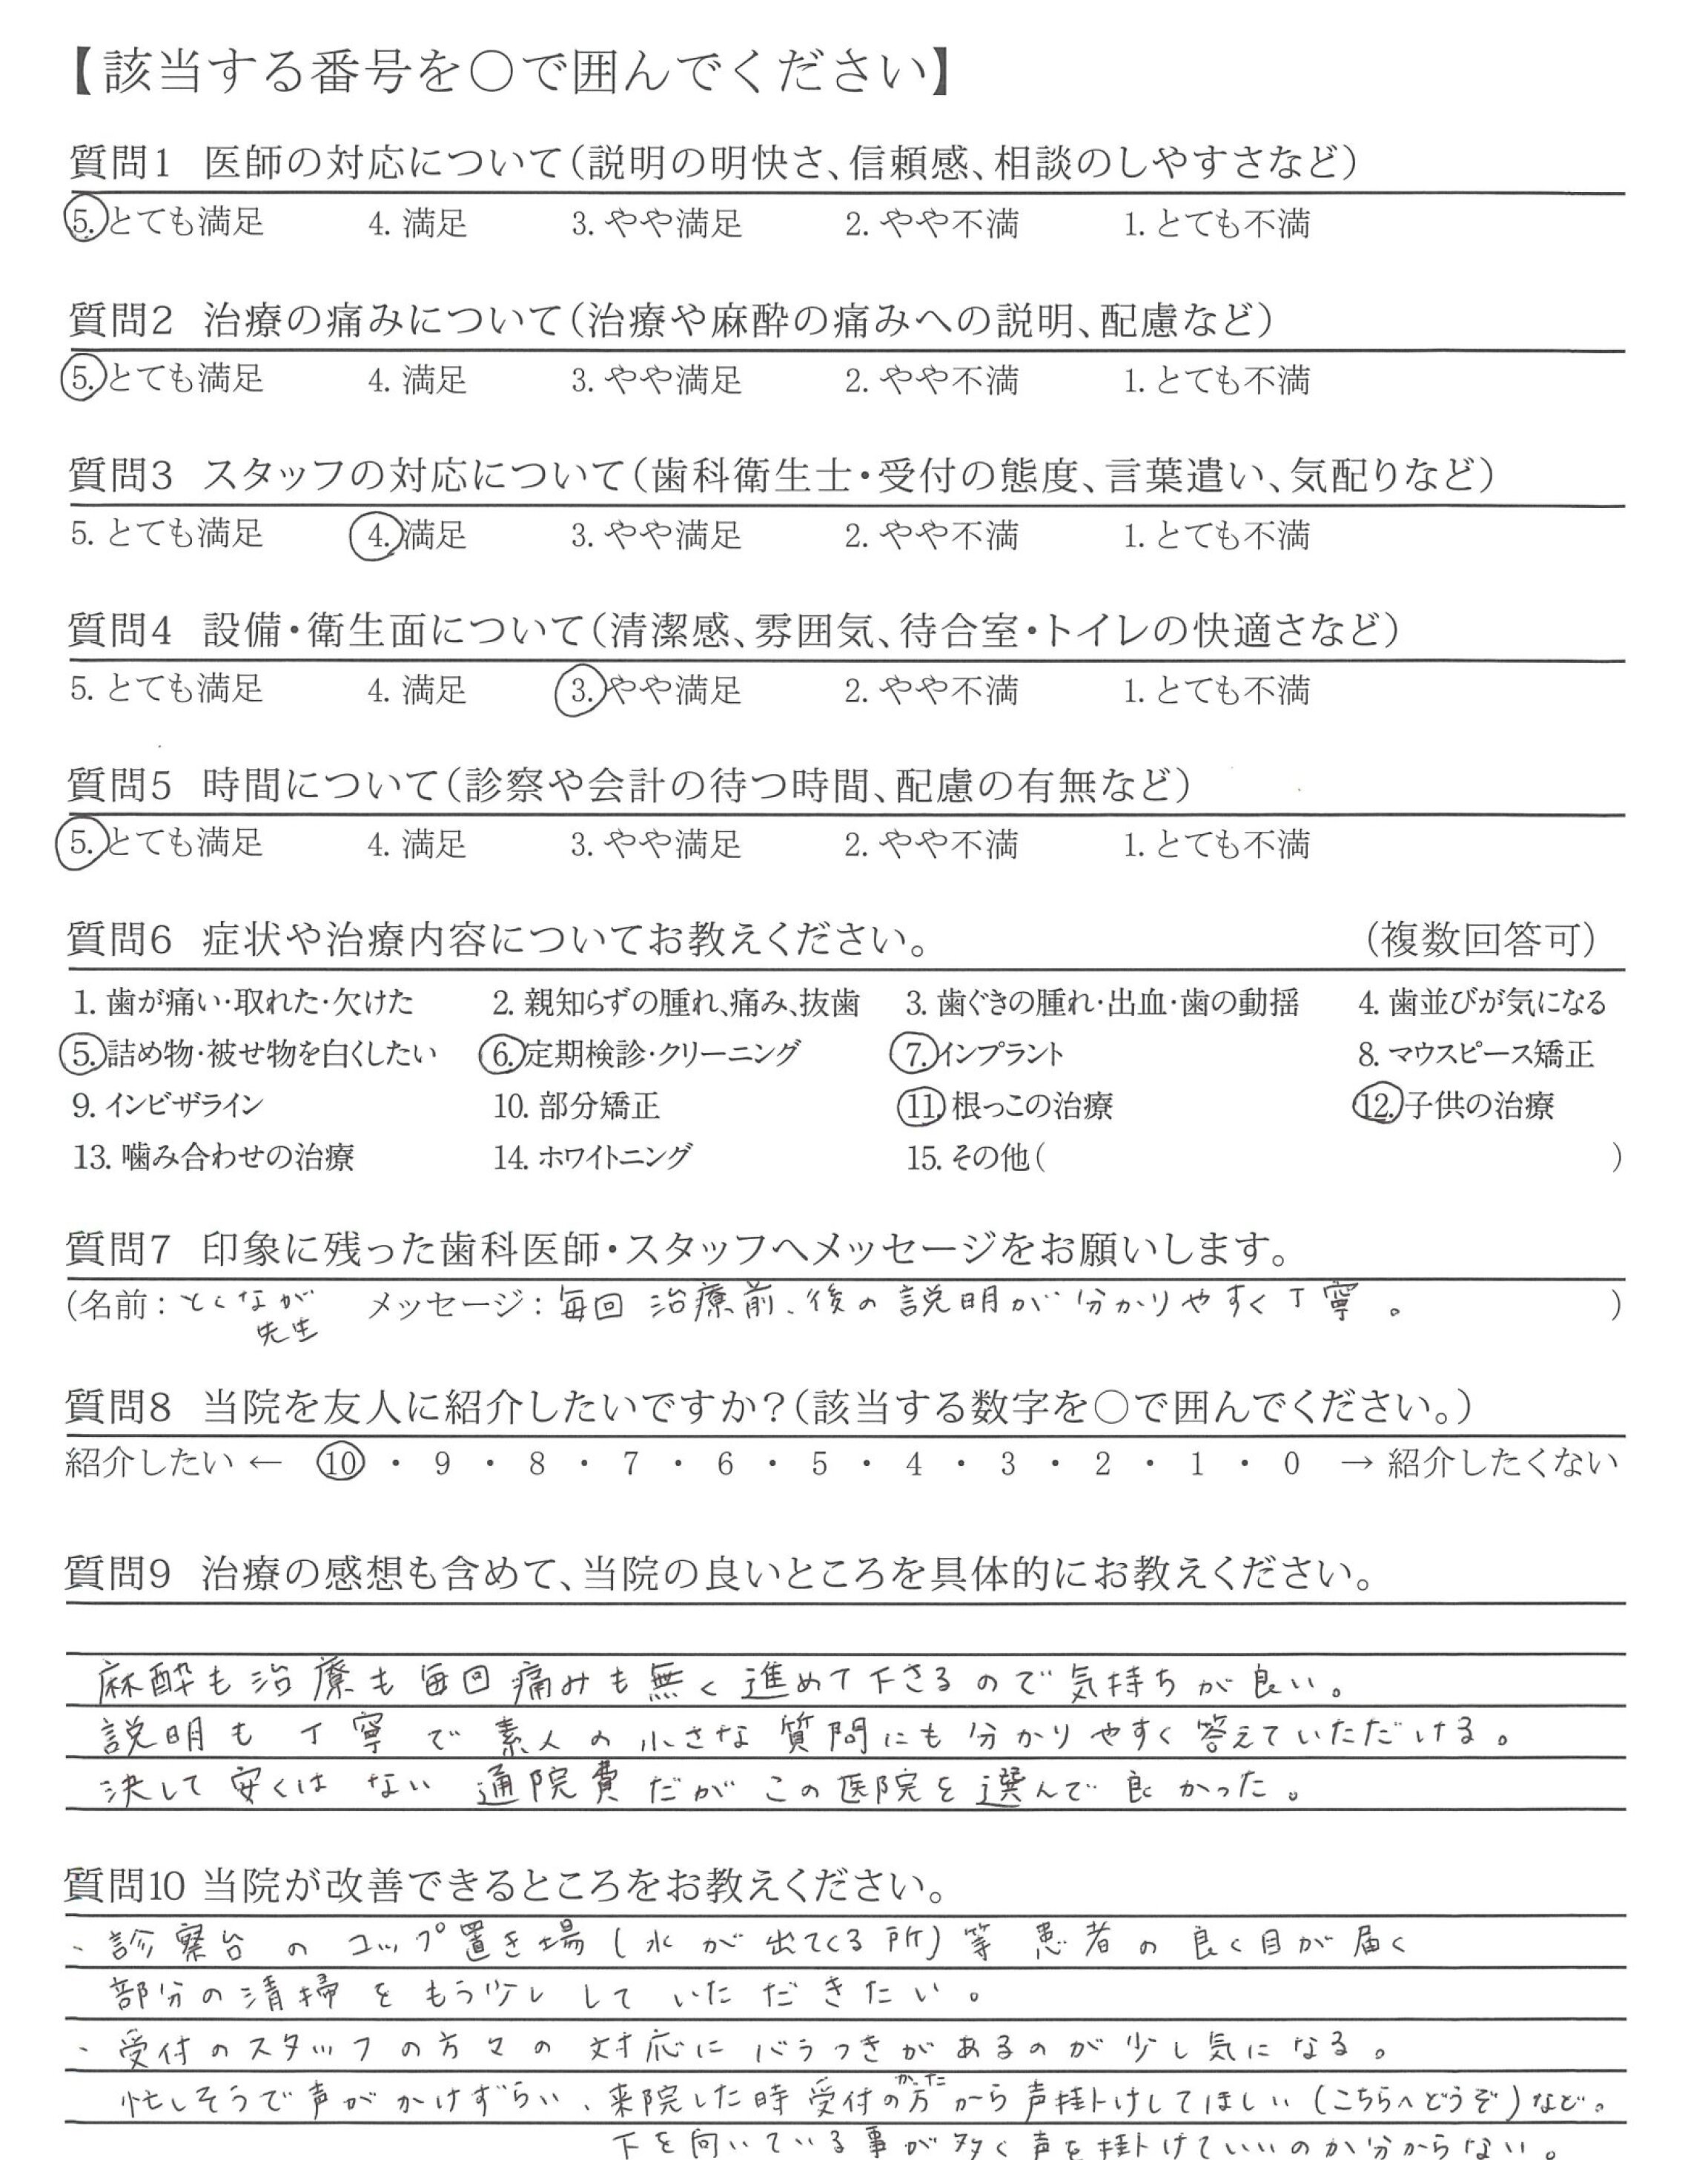 【該当する番号を○で囲んでください】
質問1 医師の対応について(説明の明快さ、信頼感、相談のしやすさなど)
5. とても満足 4. 満足 3. やや満足 2. やや不満 1. とても不満
質問2 治療の痛みについて(治療や麻酔の痛みへの説明、配慮など)
5. とても満足 4. 満足 3. やや満足 2. やや不満 1. とても不満
質問3 スタッフの対応について(歯科衛生士・受付の態度、言葉遣い、気配りなど)
5. とても満足 4. 満足 3. やや満足 2. やや不満 1. とても不満
質問4 設備・衛生面について(清潔感、雰囲気、待合室・トイレの快適さなど)
5. とても満足 4. 満足 3. やや満足 2. やや不満 1. とても不満
質問5 時間について(診察や会計の待つ時間、配慮の有無など)
5. とても満足 4. 満足 3. やや満足 2. やや不満 1. とても不満
質問6 症状や治療内容についてお教えください。 (複数回答可)
1. 歯が痛い・取れた・欠けた 2. 親知らずの腫れ、痛み、抜歯 3. 歯ぐきの腫れ・出血・歯の動揺 4. 歯並びが気になる
5. 詰め物・被せ物を白くしたい 6. 定期検診・クリーニング 7. インプラント 8. マウスピース矯正
9. インビザライン 10. 部分矯正 11. 根っこの治療 12. 子供の治療
13. 噛み合わせの治療 14. ホワイトニング 15. その他( )
質問7 印象に残った歯科医師・スタッフへメッセージをお願いします。
(名前: とくなが メッセージ: 毎回 治療前、後の説明が分かりやすく丁寧。 )
先生
質問8 当院を友人に紹介したいですか?(該当する数字を○で囲んでください。)
紹介したい ← 10 ・ 9 ・ 8 ・ 7 ・ 6 ・ 5 ・ 4 ・ 3 ・ 2 ・ 1 ・ 0 → 紹介したくない
質問9 治療の感想も含めて、当院の良いところを具体的にお教えください。
麻酔も治療も毎回痛みも無く進めて下さるので気持ちが良い。
説明も丁寧で素人の小さな質問にも分かりやすく答えていただける。
決して安くはない通院費だがこの医院を選んで良かった。
質問10 当院が改善できるところをお教えください。
・診察台のコップ置き場(水が出てくる所)等患者の良く目が届く
部分の清掃をもう少ししていただきたい。
・受付のスタッフの方々の対応にバラつきがあるのが少し気になる。
忙しそうで声がかけずらい、来院した時受付の方(かた)から声掛けしてほしい(こちらへどうぞ)など。
下を向いている事が多く声を掛けていいのか分からない。